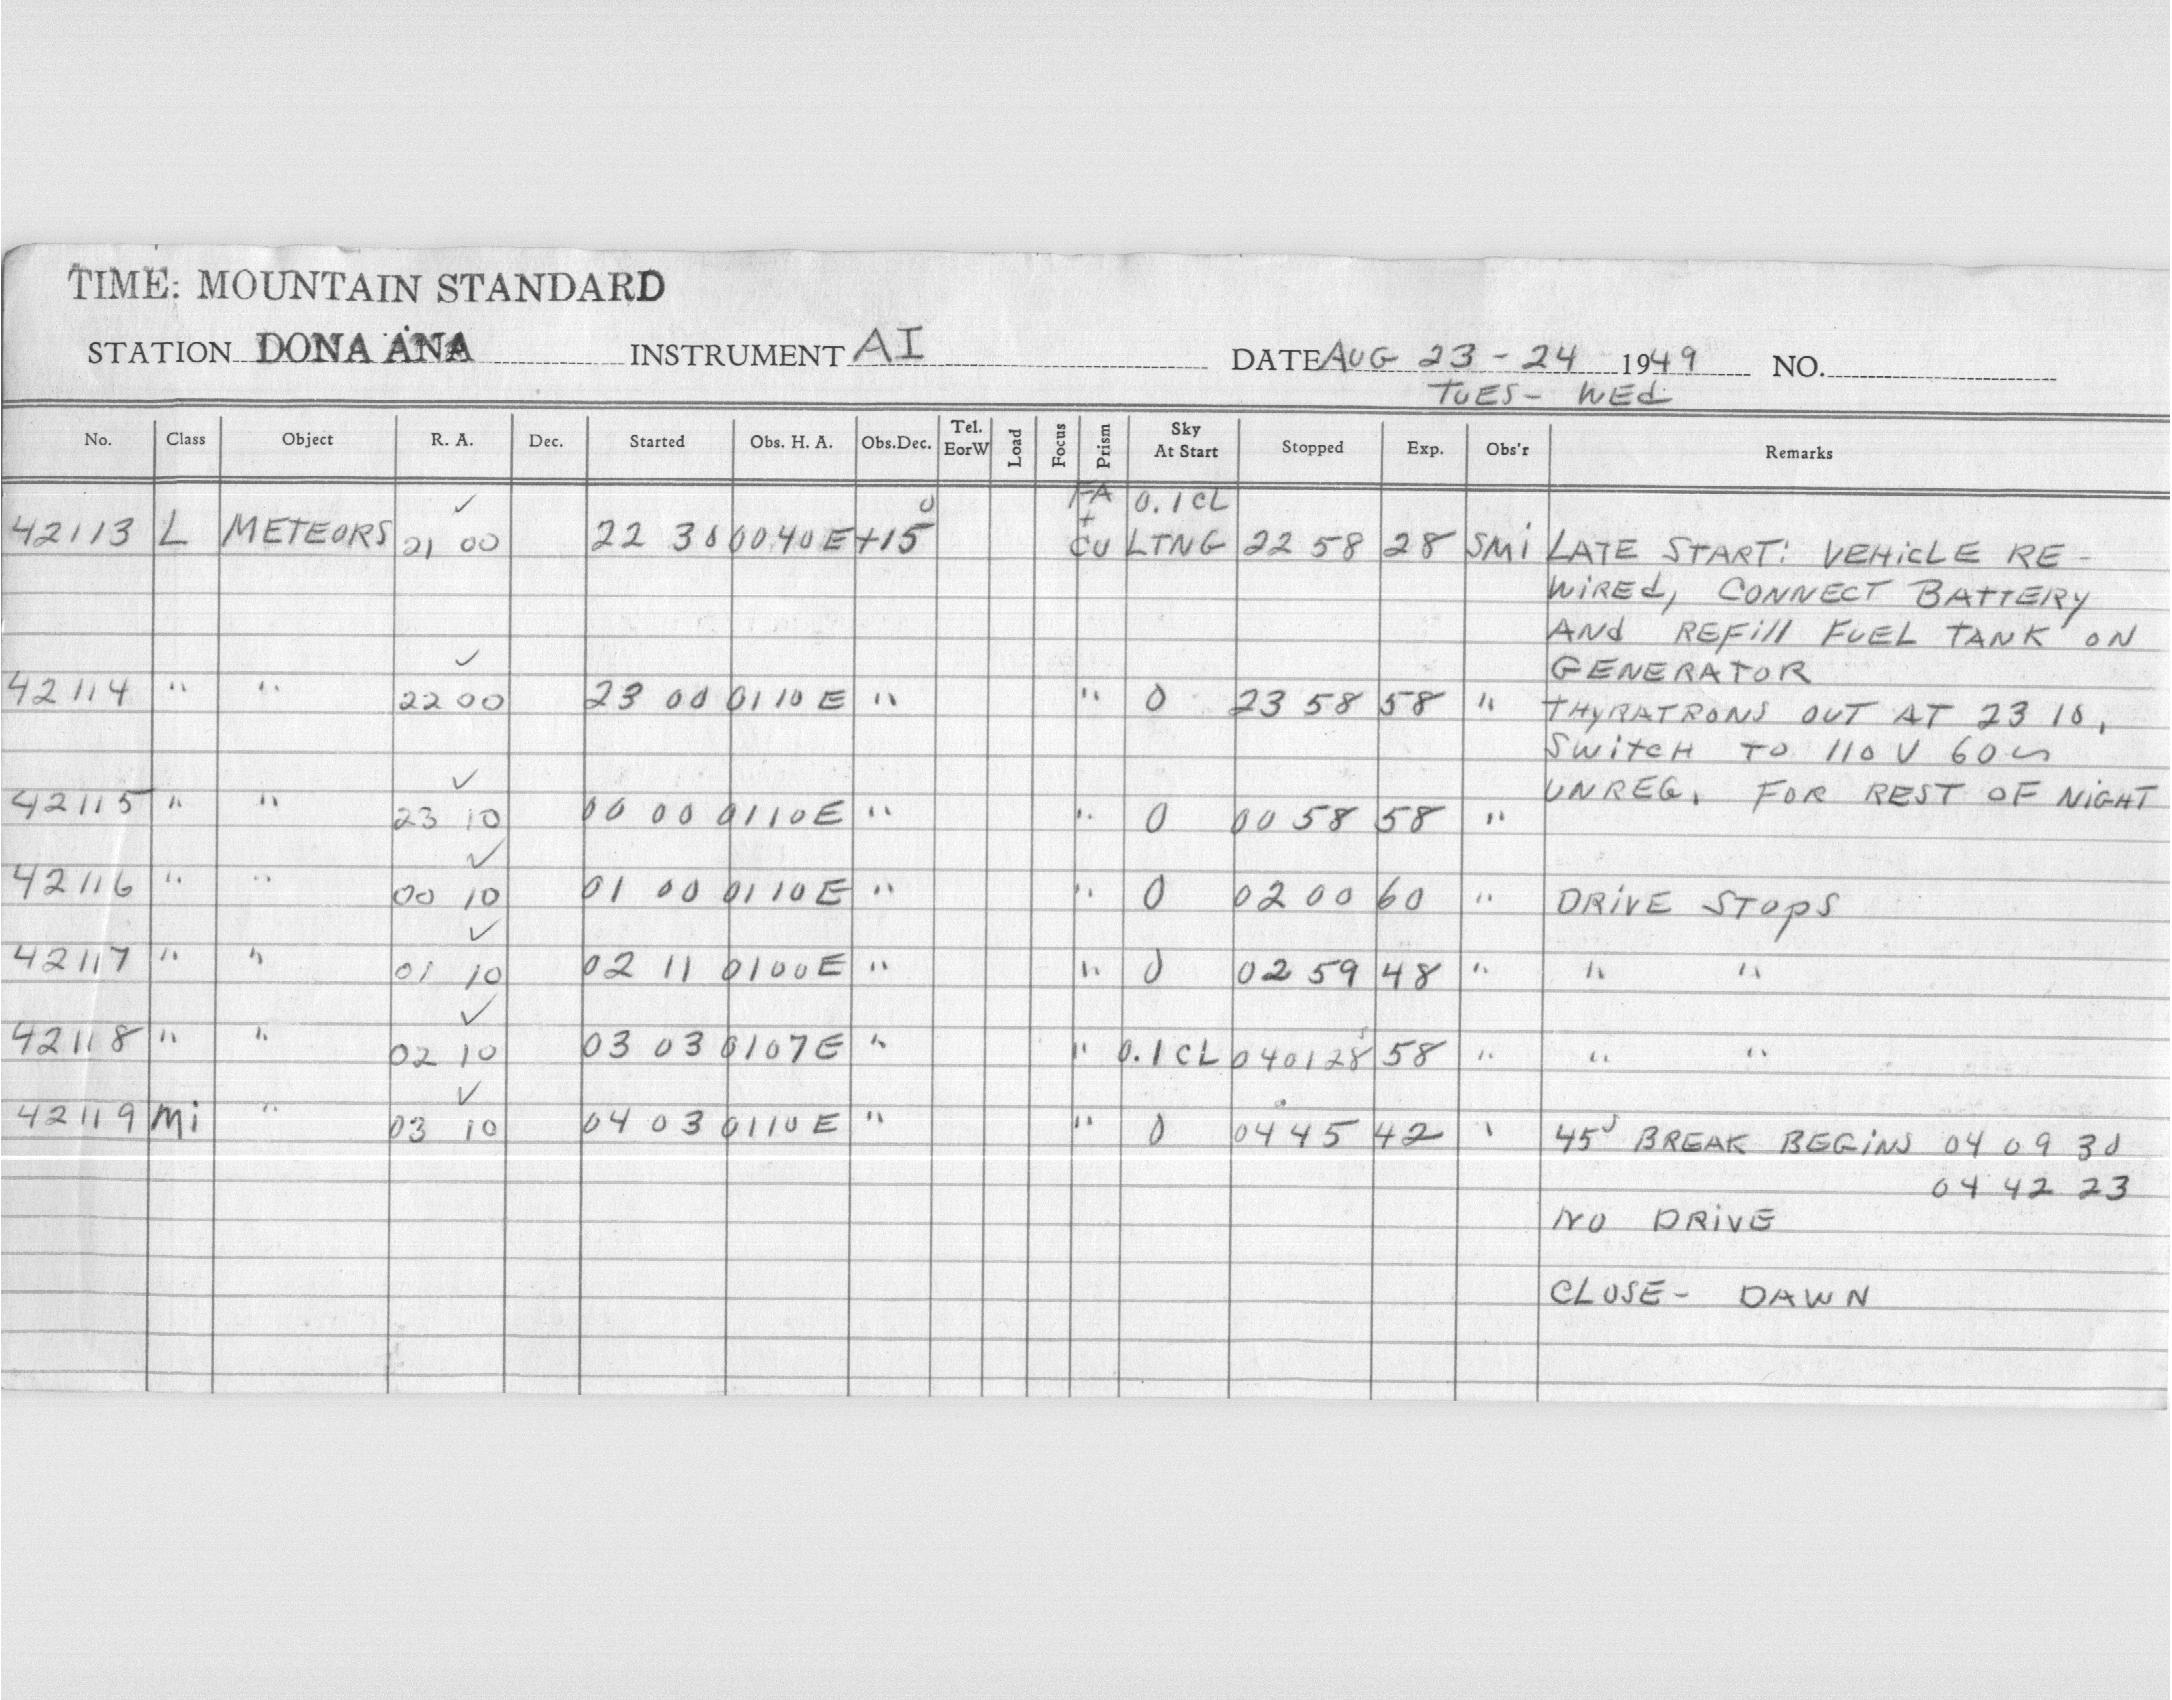 TIME: MOUNTAIN STANDARD
STATION DONA ANA INSTRUMENT AI DATE AUG 23 - 24 1949 NO.
TUES - WEd
No. Class Object R. A. Dec. Started Obs. H. A. Obs.Dec. Tel. EorW Load Focus Prism Sky At Start Stopped Exp. Obs'r Remarks
✓ 0 FA 0.1 CL
42113 L METEORS 21 00 22 30 00 40 E +15 + CU LTNG 22 58 28 SMi LATE START: VEHiCLE RE -
WiREd, CONNECT BATTERY
ANd REFill FUEL TANK ON
✓ GENERATOR
42114 " " 22 00 23 00 01 10 E " " 0 23 58 58 " THyRATRONS OUT AT 23 10,
SWiTCH TO 110 V 60 ~
✓ UNREG. FOR REST OF NiGHT
42115 " " 23 10 00 00 01 10 E " " 0 00 58 58 "
✓
42116 " " 00 10 01 00 01 10 E " " 0 02 00 60 " DRiVE STOpS
✓
42117 " " 01 10 02 11 01 00 E " " 0 02 59 48 " " "
✓
42118 " " 02 10 03 03 01 07 E " " 0.1 CL 04 01 28s 58 " " "
✓
42119 Mi " 03 10 04 03 01 10 E " " 0 04 45 42 " 45s BREAK BEGiNS 04 09 30
04 42 23
NO DRiVE
CLOSE - DAWN